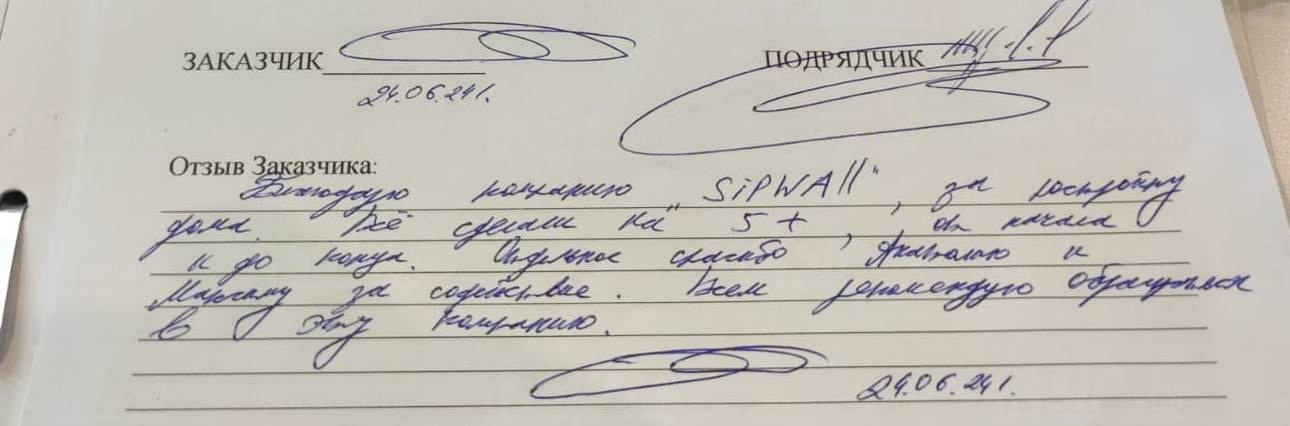 ЗАКАЗЧИК ПОДРЯДЧИК
24.06.24г.
Отзыв Заказчика:
Благодарю компанию "SiPWAll", за постройку
дома. Всё сделали на 5+, от начала
и до конца. Отдельное спасибо Анатолию и
за содействие. Всем рекомендую обращаться
в эту компанию.
24.06.24г.